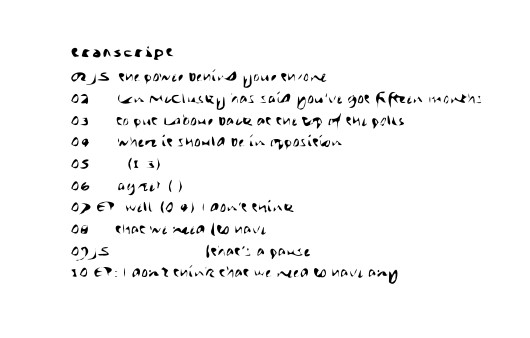 transcript
01 JS the power behind your throne
02 Len McCluskey has said you've got fifteen months
03 to put Labour back at the top of the polls
04 where it should be in opposition
05 (1 3)
06 agree? ( )
07 EP well (0 4) I don't think
08 that we need [to have
09 JS [that's a pause
10 EP: I don't think that we need to have any